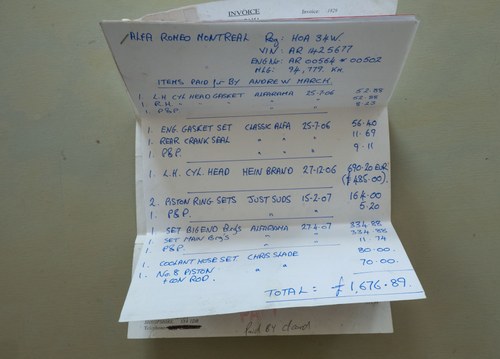 INVOICE Invoice:
ALFA ROMEO MONTREAL Reg: HOA 34W.
VIN: AR 1425677
ENG No: AR 00564 * 00502
MLG: 94,777 Km
ITEMS PAID for BY ANDREW MARCH.
1 L.H. CYL HEAD GASKET ALFARAMA 25-7-06 52.88
1 R.H. " " " " 52.88
1 P&P 8.23
1 ENG. GASKET SET CLASSIC ALFA 25-7-06 56.40
1 REAR CRANK SEAL " " " 11.69
1 P&P. " " " 9.11
1 L.H. CYL HEAD HEIN BRAND 27-12-06 690.20 EUR
(£485.00).
2 PISTON RING SETS JUST SUDS 15-2-07 164.00
1 P&P. " " 5.20
1 SET BIG END Brg's ALFARAMA 27-4-07 334.88
1 SET MAIN Brg's " " 334.88
1 P&P " " 11.74
1 COOLANT HOSE SET CHRIS SLADE 80.00
1 No.8 PISTON " " 70.00
+ CON ROD.
TOTAL = £1,676.89.
Paid By